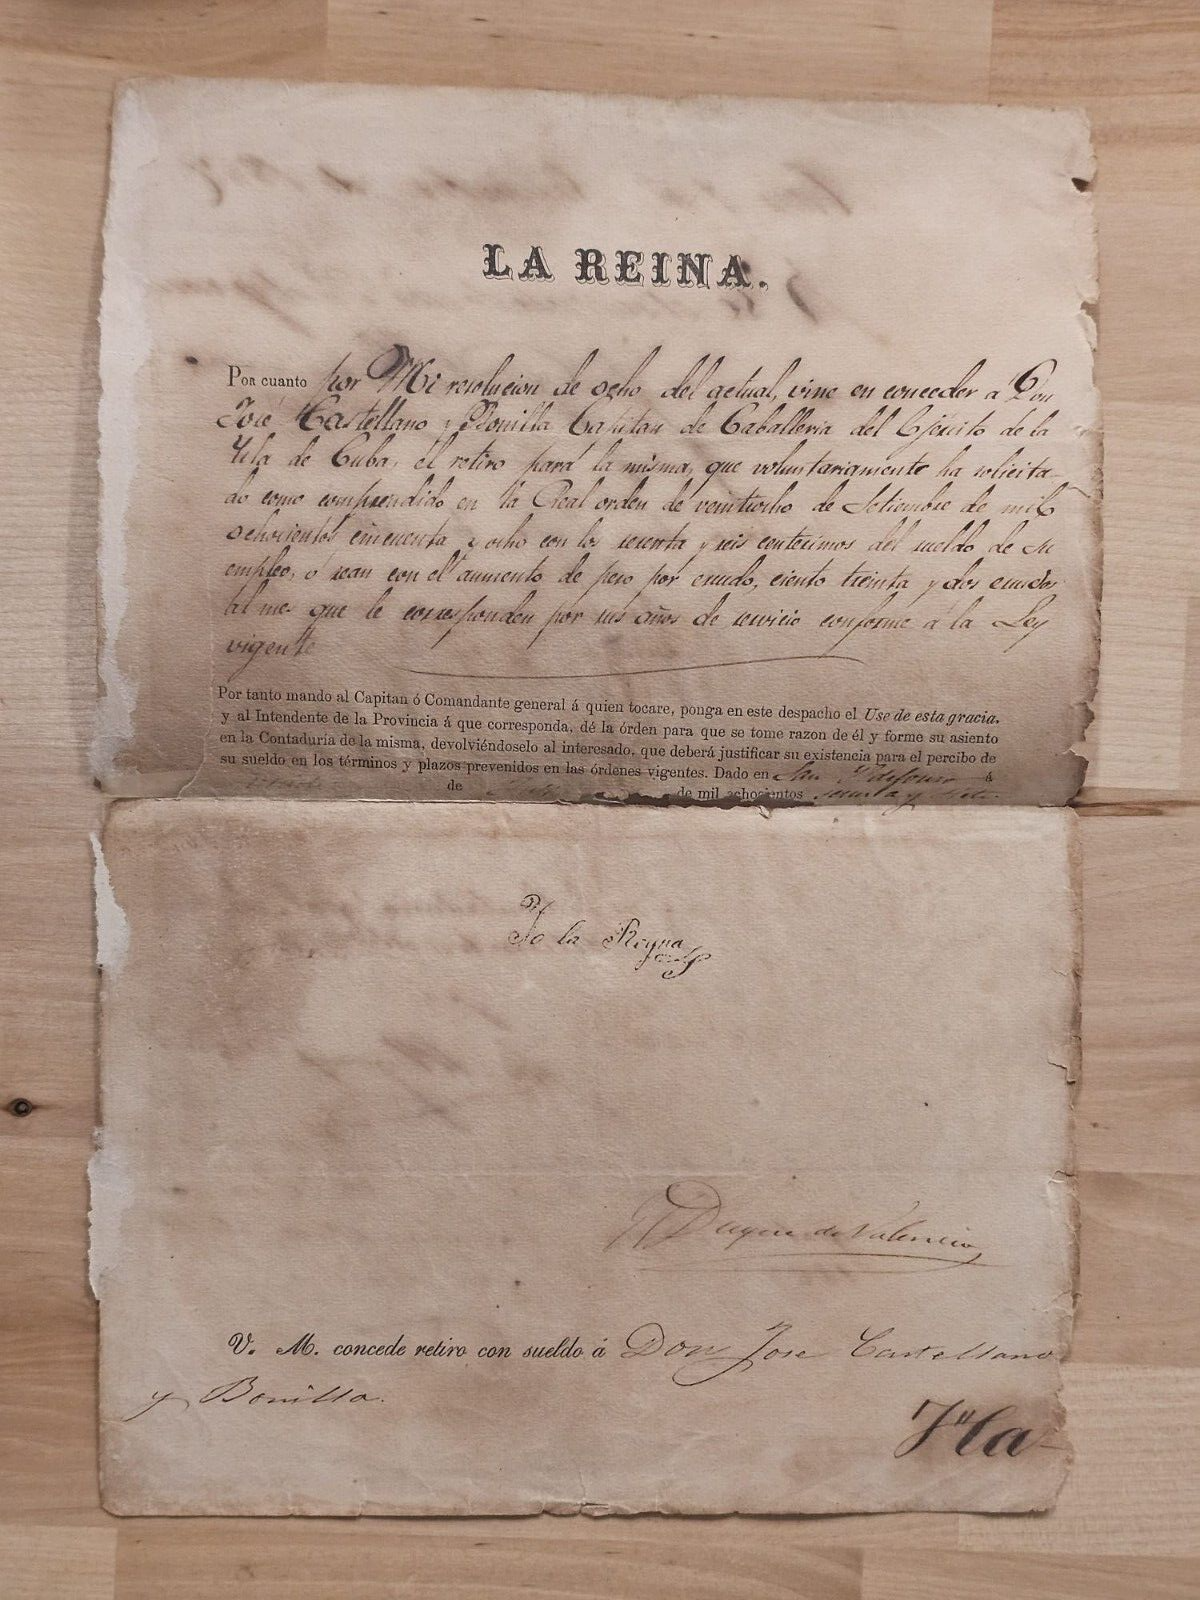 LA REINA.
Por cuanto por Mi resolucion de ocho del actual, vine en conceder a Don
José Castellano y Bonilla Capitan de Caballeria del Ejercito de la
Ysla de Cuba, el retiro para la misma, que voluntariamente ha solicita-
do como comprendido en la Real orden de veintiocho de Setiembre de mil
ochocientos cincuenta y ocho con los sesenta y seis centesimos del sueldo de su
empleo, o sean con el aumento de peso por escudo, ciento treinta y dos escudos
al mes que le corresponden por sus años de servicio conforme a la Ley
vigente
Por tanto mando al Capitan ó Comandante general á quien tocare, ponga en este despacho el Use de esta gracia,
y al Intendente de la Provincia á que corresponda, dé la órden para que se tome razon de él y forme su asiento
en la Contaduría de la misma, devolviéndoselo al interesado, que deberá justificar su existencia para el percibo de
su sueldo en los términos y plazos prevenidos en las órdenes vigentes. Dado en San Yldefonso á
de de mil ochocientos sesenta y siete.
Yo la Reyna
El Duque de Valencia
V. M. concede retiro con sueldo á Don Jose Castellano
y Bonilla.